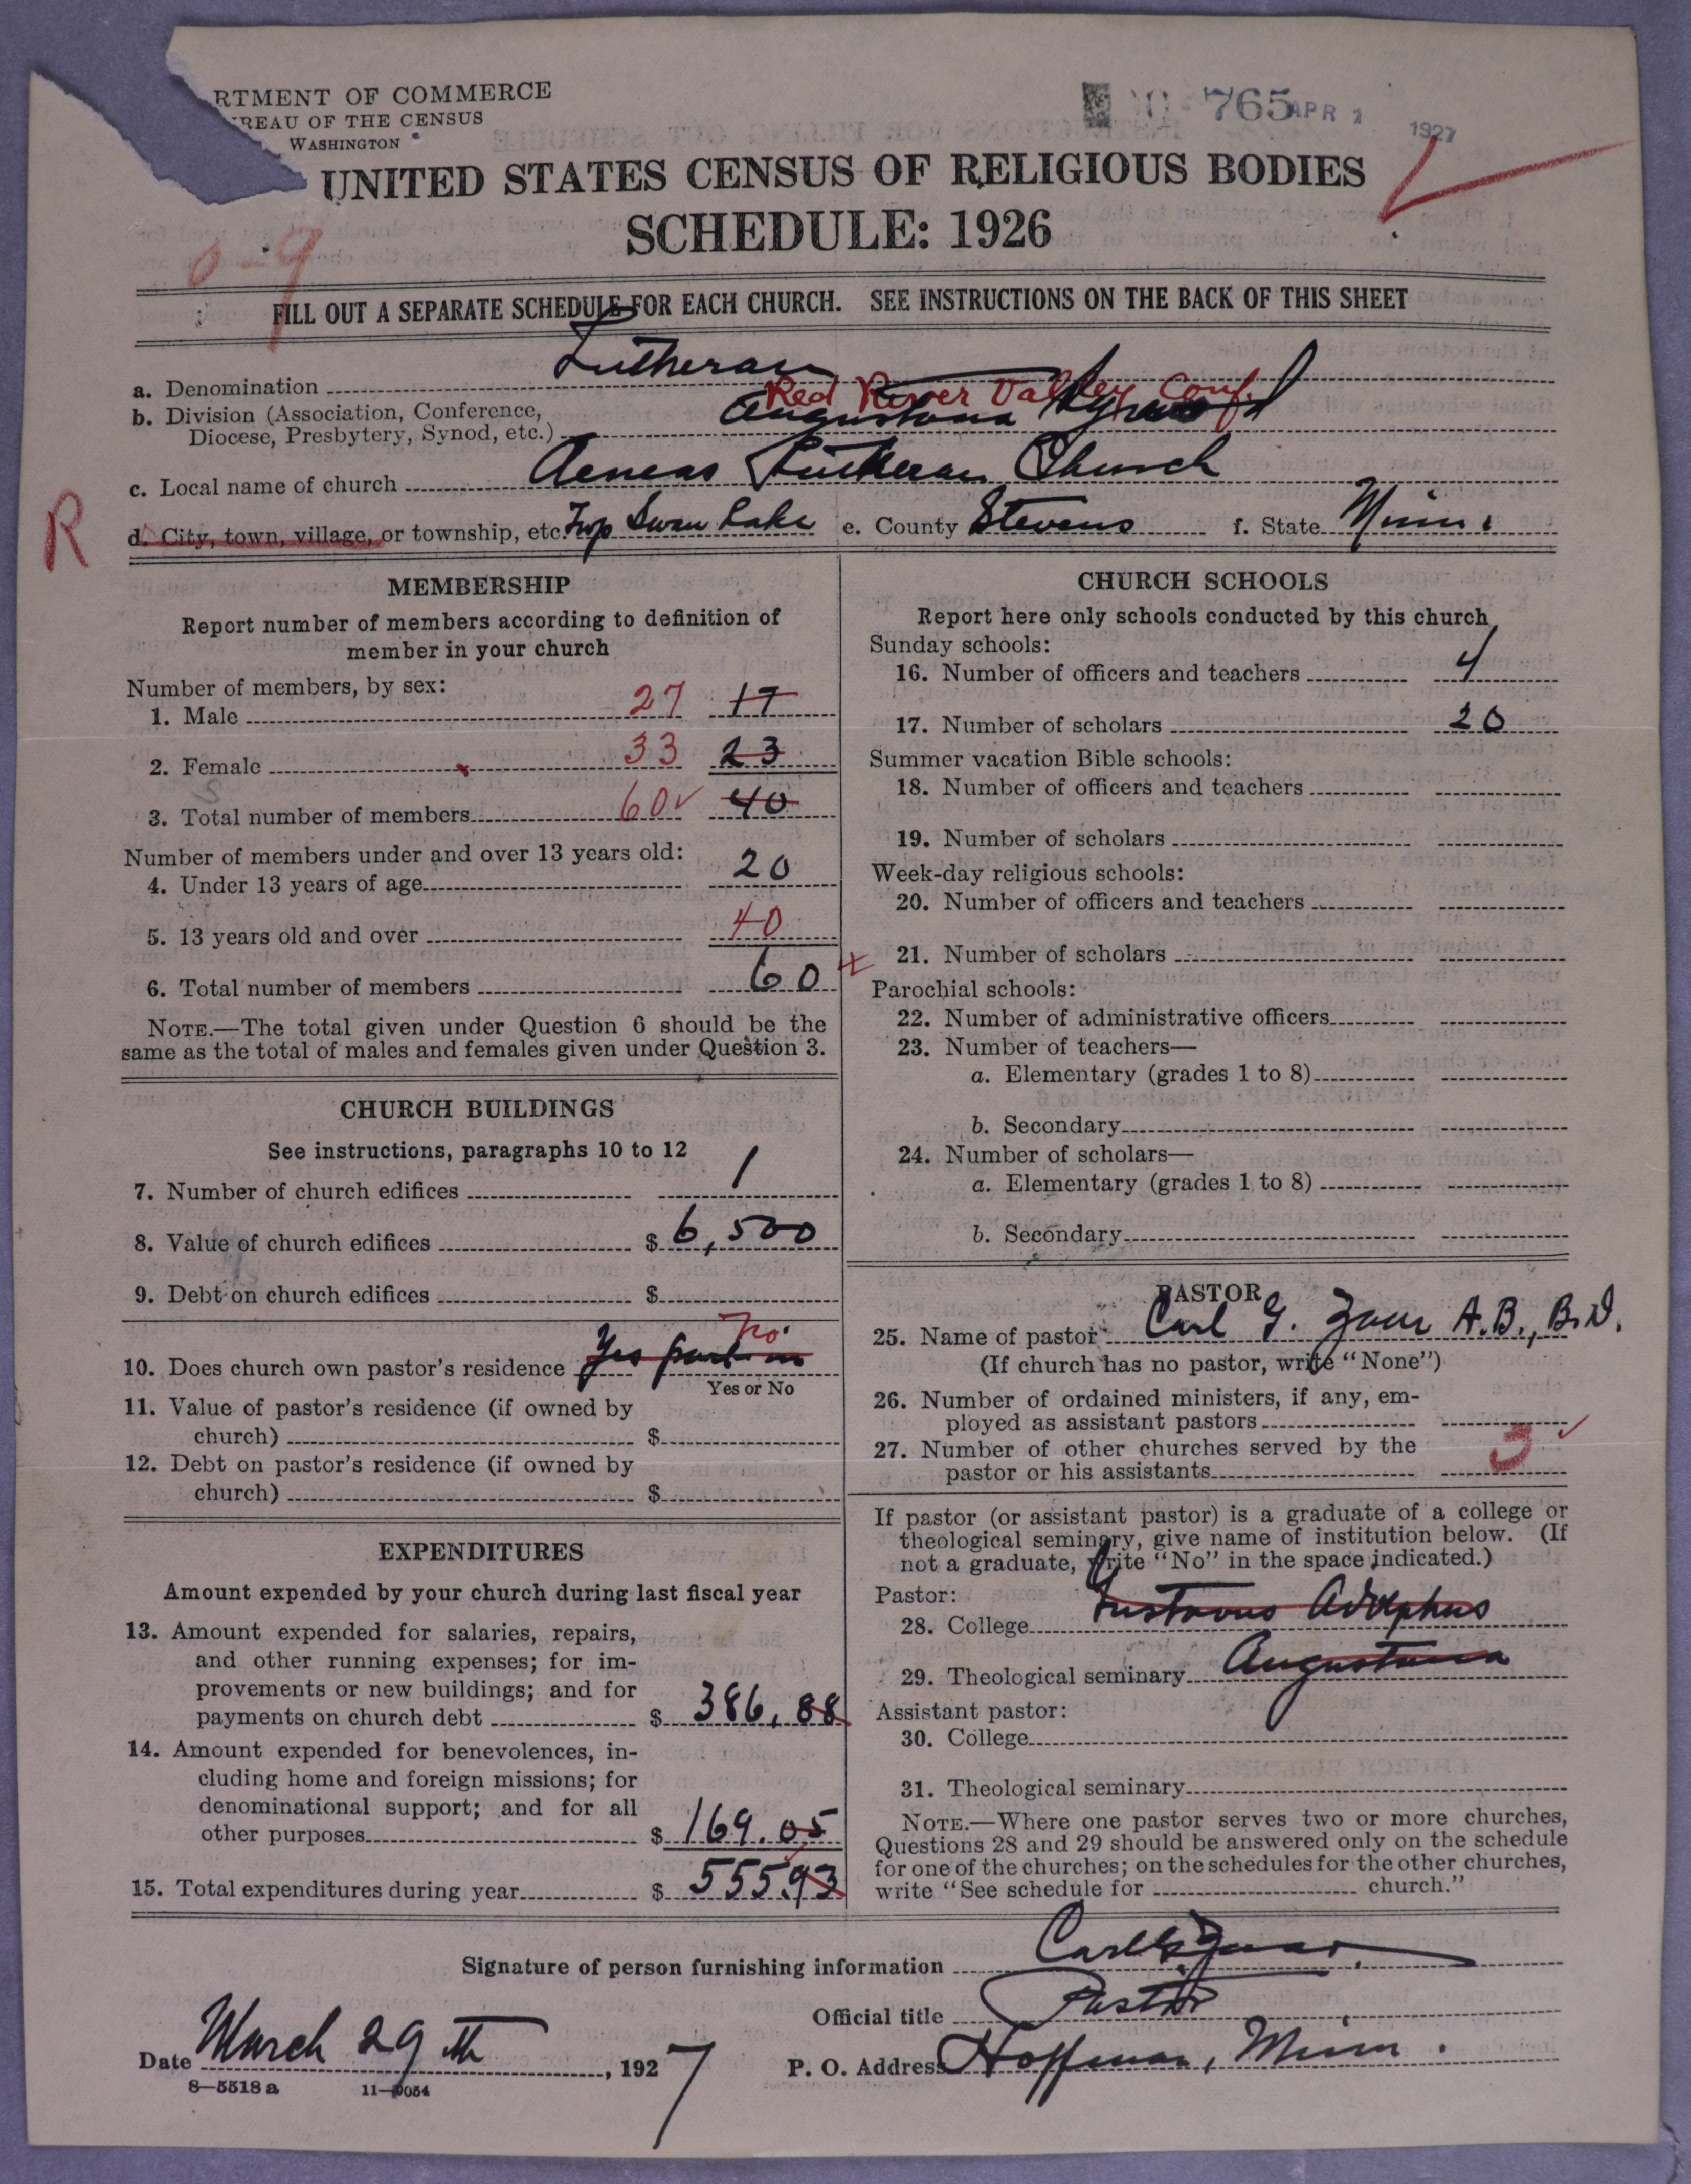 RTMENT OF COMMERCE
REAU OF THE CENSUS
WASHINGTON
765 APR 1 1927
UNITED STATES CENSUS OF RELIGIOUS BODIES
SCHEDULE: 1926
0-9
FILL OUT A SEPARATE SCHEDULE FOR EACH CHURCH. SEE INSTRUCTIONS ON THE BACK OF THIS SHEET
a. Denomination Lutheran
Red River Valley Conf.
b. Division (Association, Conference, Augustana Synod
Diocese, Presbytery, Synod, etc.)
c. Local name of church Aeneas Lutheran Church
R
d. City, town, village, or township, etc. Twp Swan Lake e. County Stevens f. State Minn.
MEMBERSHIP
Report number of members according to definition of
member in your church
Number of members, by sex:
1. Male 27 17
2. Female 33 23
3. Total number of members 60 40
Number of members under and over 13 years old:
4. Under 13 years of age 20
5. 13 years old and over 40
6. Total number of members 60
NOTE.—The total given under Question 6 should be the
same as the total of males and females given under Question 3.
CHURCH BUILDINGS
See instructions, paragraphs 10 to 12
7. Number of church edifices 1
8. Value of church edifices $ 6,500
9. Debt on church edifices $
10. Does church own pastor's residence Yes part in No
Yes or No
11. Value of pastor's residence (if owned by
church) $
12. Debt on pastor's residence (if owned by
church) $
EXPENDITURES
Amount expended by your church during last fiscal year
13. Amount expended for salaries, repairs,
and other running expenses; for im-
provements or new buildings; and for
payments on church debt $ 386.88
14. Amount expended for benevolences, in-
cluding home and foreign missions; for
denominational support; and for all
other purposes $ 169.05
15. Total expenditures during year $ 555.93
CHURCH SCHOOLS
Report here only schools conducted by this church
Sunday schools:
16. Number of officers and teachers 4
17. Number of scholars 20
Summer vacation Bible schools:
18. Number of officers and teachers
19. Number of scholars
Week-day religious schools:
20. Number of officers and teachers
21. Number of scholars
Parochial schools:
22. Number of administrative officers
23. Number of teachers—
a. Elementary (grades 1 to 8)
b. Secondary
24. Number of scholars—
a. Elementary (grades 1 to 8)
b. Secondary
PASTOR
25. Name of pastor Carl G. Zaar A.B., B.D.
(If church has no pastor, write "None")
26. Number of ordained ministers, if any, em-
ployed as assistant pastors
27. Number of other churches served by the
pastor or his assistants 3
If pastor (or assistant pastor) is a graduate of a college or
theological seminary, give name of institution below. (If
not a graduate, write "No" in the space indicated.)
Pastor:
28. College Gustavus Adolphus
29. Theological seminary Augustana
Assistant pastor:
30. College
31. Theological seminary
NOTE.—Where one pastor serves two or more churches,
Questions 28 and 29 should be answered only on the schedule
for one of the churches; on the schedules for the other churches,
write "See schedule for church."
Signature of person furnishing information Carl G. Zaar
Official title Pastor
Date March 29th, 1927 P. O. Address Hoffman, Minn.
8—5518 a 11—9054